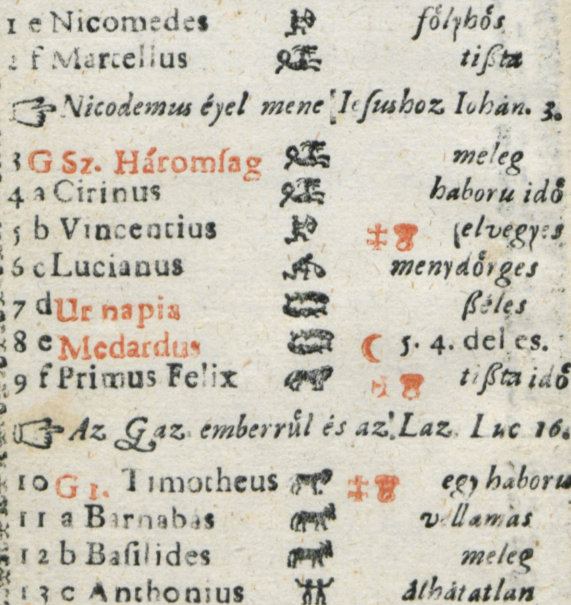 1 e Nicomedes főlyhős
2 f Marcellus tißta
Nicodemus éyel mene Iesushoz Iohan. 3.
3 G Sz. Háromſag meleg
4 a Cirinus haboru idő
5 b Vincentius elvegyes
6 c Lucianus menydőrges
7 d Ur napia ßeles
8 e Medardus 5. 4. del es.
9 f Primus Felix tißta idő
Az Gaz. emberrűl és az Laz. Luc 16.
10 G 1. Timotheus egy haboru
11 a Barnabas villamas
12 b Baſilides meleg
13 c Anthonius álhátatlan